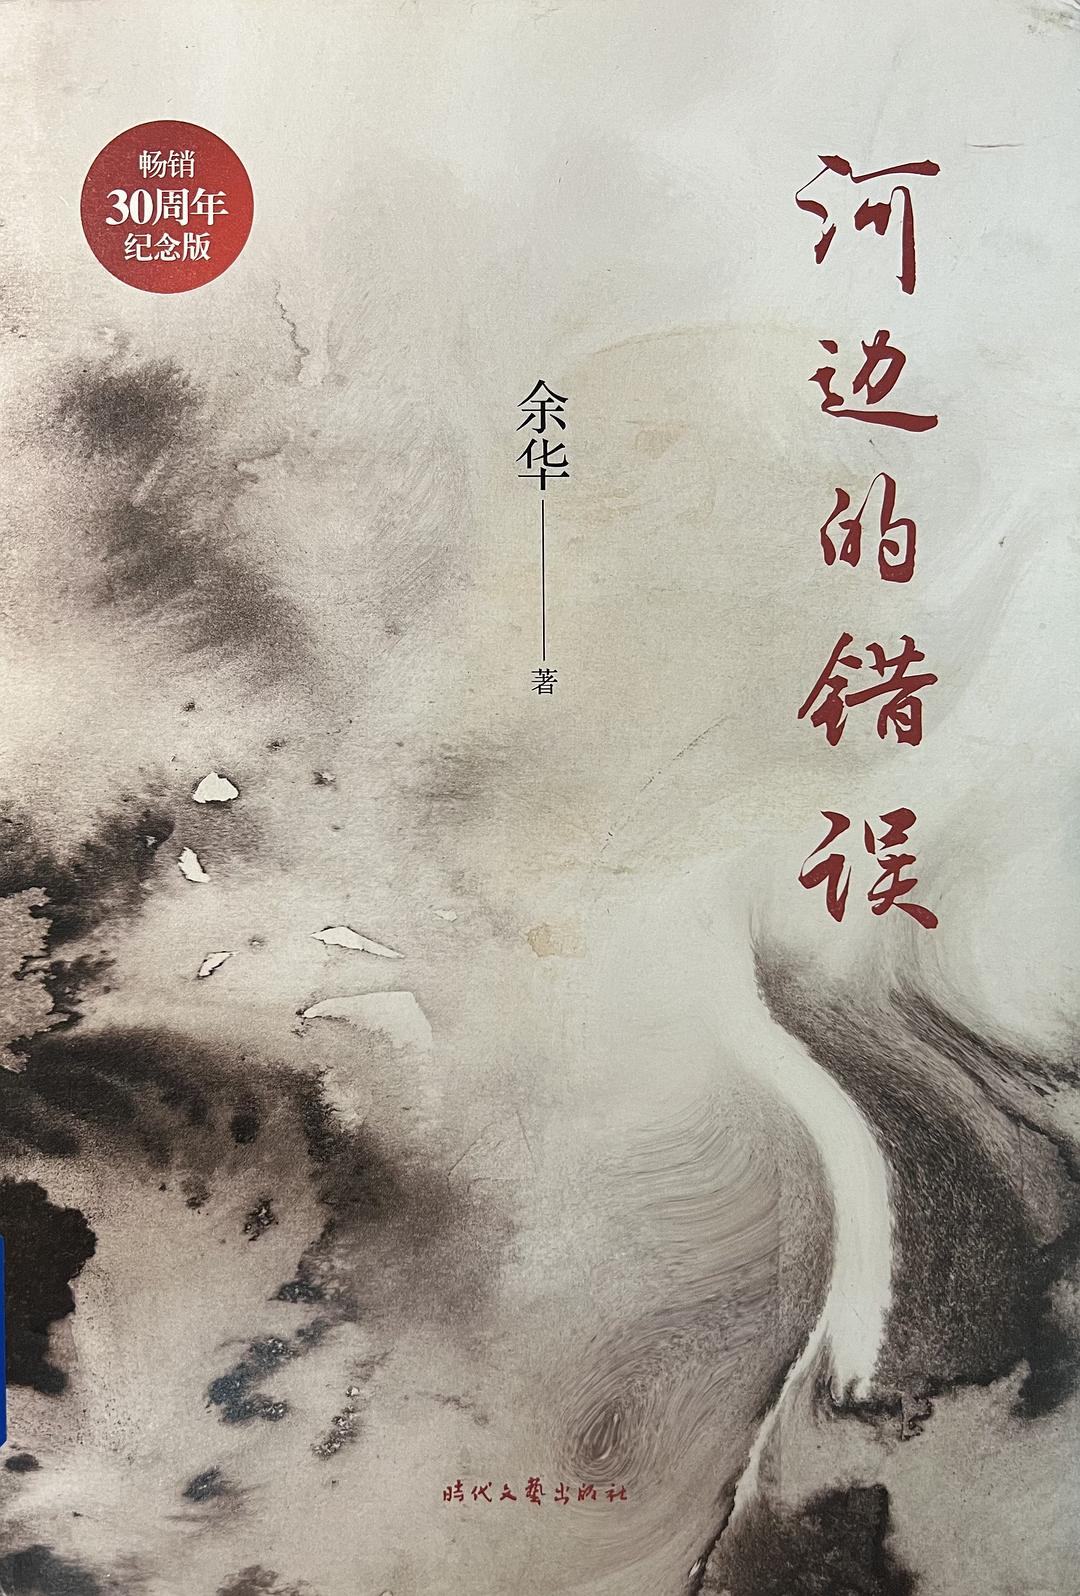 畅销
30周年
纪念版
河边的错误
余华——著
時代文藝出版社